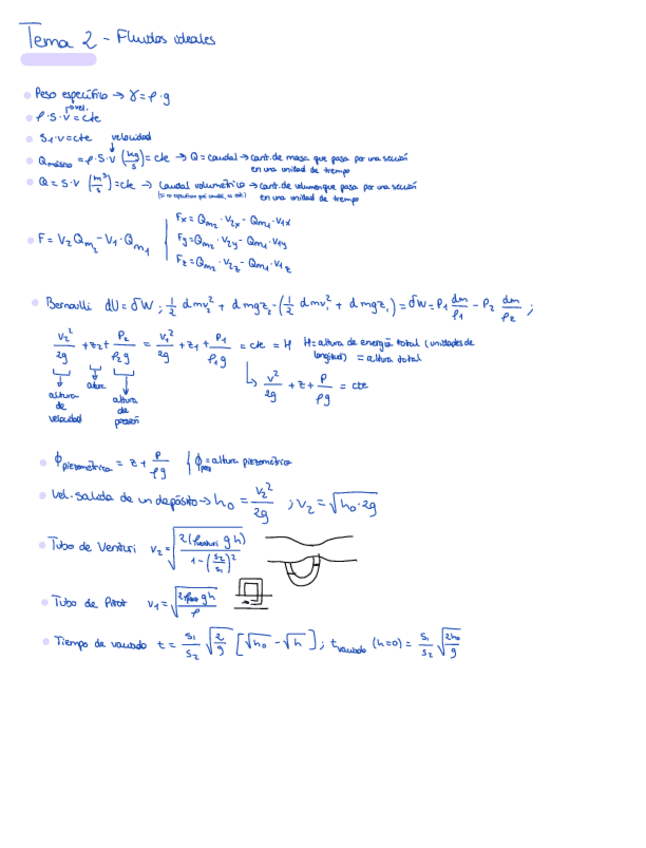 Tema 2 - Fluidos ideales
Peso específico → γ = ρ·g
ρ·S·v = cte
vel.
S·v = cte velocidad
Q másico = ρ·S·v (kg/s) = cte → Q = caudal → cant. de masa que pasa por una sección
en una unidad de tiempo
Q = S·v (m³/s) = cte → Caudal volumétrico → cant. de volumen que pasa por una sección
en una unidad de tiempo
Fx = Qm₂·V₂x - Qm₁·V₁x
F = V₂Qm₂ - V₁·Qm₁ Fy = Qm₂·V₂y - Qm₁·V₁y
Fz = Qm₂·V₂z - Qm₁·V₁z
Bernoulli dU = δW ; 1/2 dmv₂² + dmgz₂ - (1/2 dmv₁² + dmgz₁) = δW = P₁ dm/ρ₁ - P₂ dm/ρ₂ ;
v₂²/2g + z₂ + P₂/ρ₂g = v₁²/2g + z₁ + P₁/ρ₁g = cte = H H = altura de energía total (unidades de
longitud) = altura total
↳ v²/2g + z + P/ρg = cte
altura de velocidad
altura
altura de presión
ϕ piezométrica = z + P/ρg { ϕ = altura piezométrica
Vel. salida de un depósito → h₀ = v₂²/2g ; v₂ = √(h₀·2g)
Tubo de Venturi v₂ = √(2( g h)/(1 - (S₂/S₁)²))
Tubo de Pitot v₁ = √(2 gh/ρ)
Tiempo de vaciado t = S₁/S₂ √(2/g) [√h₀ - √h] ; t vaciado (h=0) = S₁/S₂ √(2h₀/g)